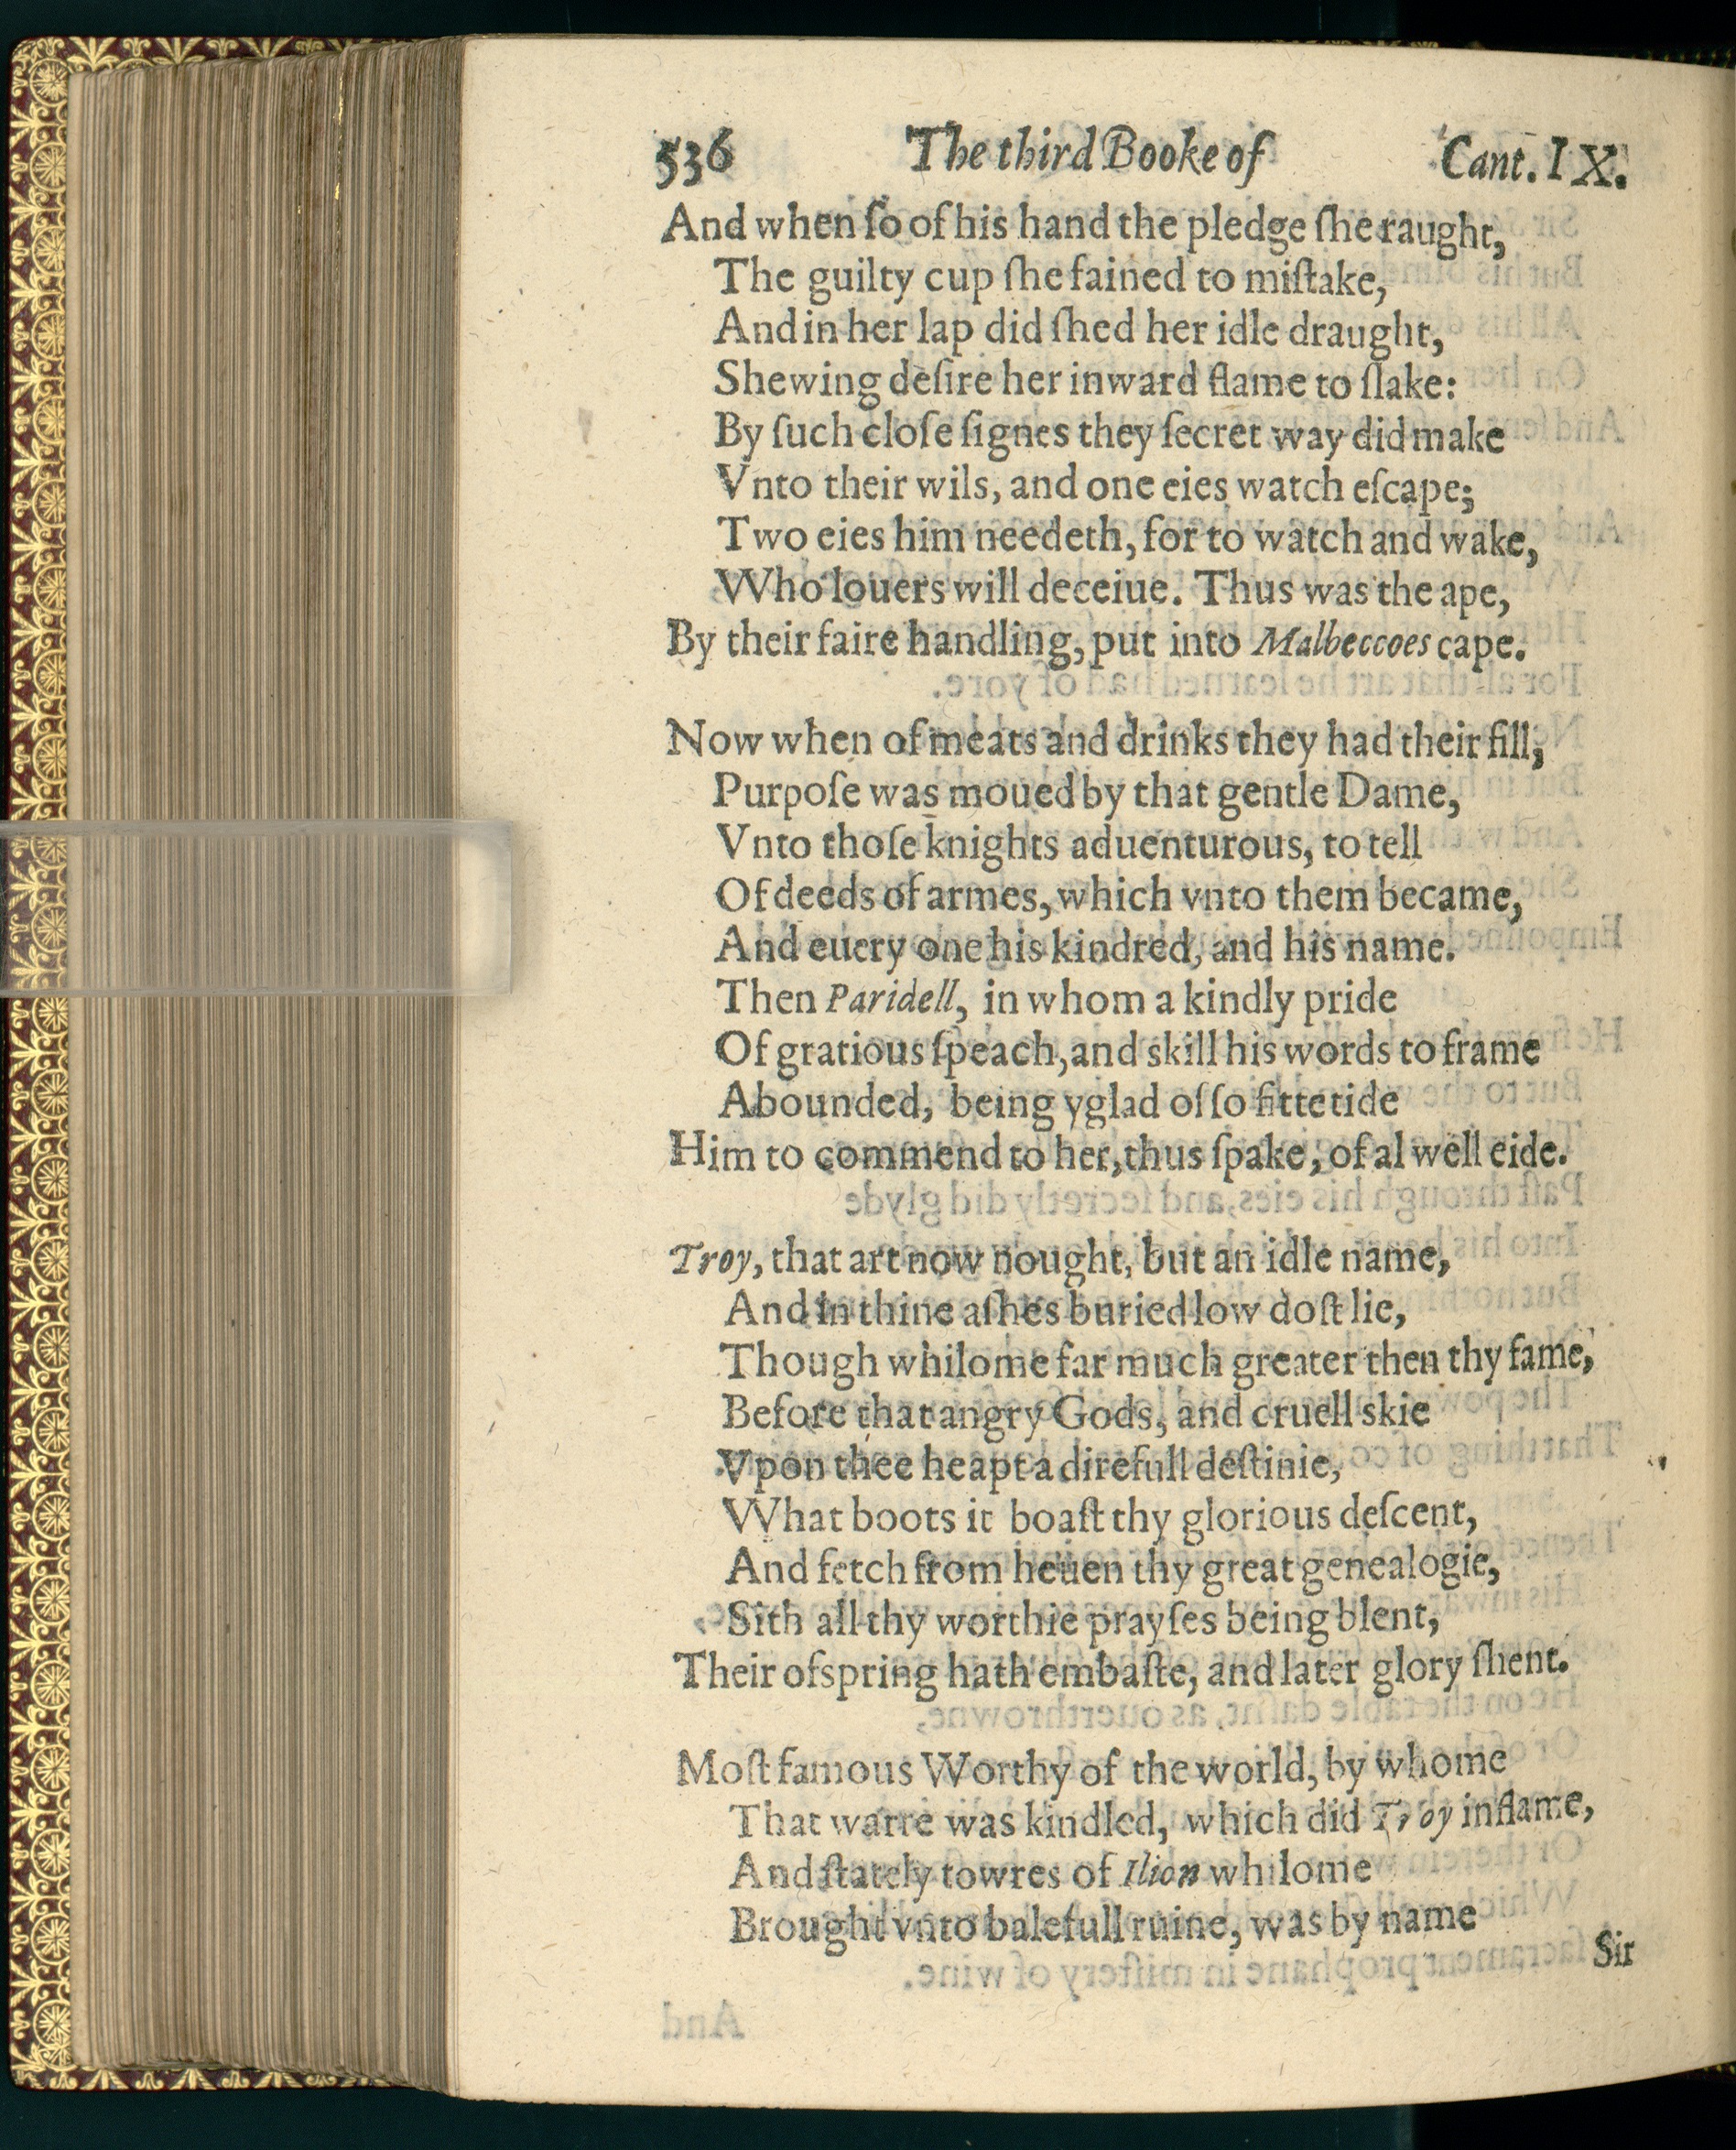 536 The third Booke of Cant. IX.
And when ſo of his hand the pledge ſhe raught,
The guilty cup ſhe fained to miſtake,
And in her lap did ſhed her idle draught,
Shewing deſire her inward flame to ſlake:
By ſuch cloſe ſignes they ſecret way did make
Vnto their wils, and one eies watch eſcape;
Two eies him needeth, for to watch and wake,
Who louers will deceiue. Thus was the ape,
By their faire handling, put into Malbeccoes cape.
Now when of meats and drinks they had their fill,
Purpoſe was moued by that gentle Dame,
Vnto thoſe knights aduenturous, to tell
Of deeds of armes, which vnto them became,
And euery one his kindred, and his name.
Then Paridell, in whom a kindly pride
Of gratious ſpeach, and skill his words to frame
Abounded, being yglad of ſo fitte tide
Him to commend to her, thus ſpake, of al well eide.
Troy, that art now nought, but an idle name,
And in thine aſhes buried low doſt lie,
Though whilome far much greater then thy fame,
Before that angry Gods, and cruell skie
Vpon thee heapt a direfull deſtinie,
What boots it boaſt thy glorious deſcent,
And fetch from heuen thy great genealogie,
Sith all thy worthie prayſes being blent,
Their ofspring hath embaſte, and later glory ſhent.
Moſt famous Worthy of the world, by whome
That warre was kindled, which did Troy inflame,
And ſtately towres of Ilion whilome
Brought vnto balefull ruine, was by name
Sir